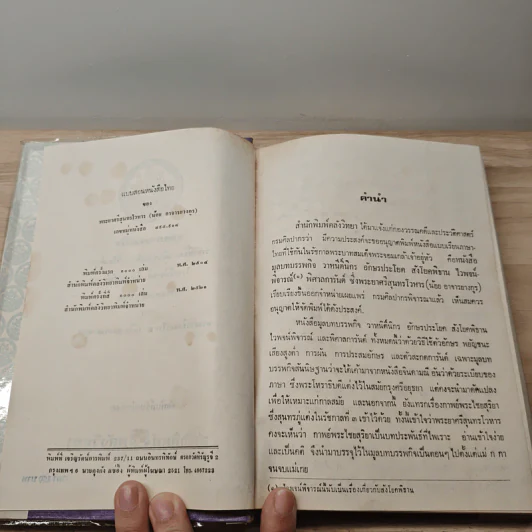 แบบสอนหนังสือไทย
ของ
พระยาศรีสุนทรโวหาร (น้อย อาจารยางกูร)
เลขหมู่หนังสือ
พิมพ์ครั้งแรก ๑๐๐๐ เล่ม พ.ศ. ๒๕๐๔
สำนักพิมพ์คลังวิทยาพิมพ์จำหน่าย
พิมพ์ครั้งที่สี่ ๑๐๐๐ เล่ม พ.ศ. ๒๕๒๑
สำนักพิมพ์คลังวิทยาพิมพ์จำหน่าย
คำนำ
สำนักพิมพ์คลังวิทยา ได้มาแจ้งแก่กองวรรณคดีและประวัติศาสตร์
กรมศิลปากรว่า มีความประสงค์จะขออนุญาตพิมพ์หนังสือแบบเรียนภาษา
ไทยที่ใช้กันในรัชกาลพระบาทสมเด็จพระจอมเกล้าเจ้าอยู่หัว คือหนังสือ
มูลบทบรรพกิจ วาหนิติ์นิกร อักษรประโยค สังโยคพิธาน ไวพจน์
พิจารณ์(๑) พิศาลการันต์ ซึ่งพระยาศรีสุนทรโวหาร (น้อย อาจารยางกูร)
เรียบเรียงขึ้นออกจำหน่ายเผยแพร่ กรมศิลปากรพิจารณาแล้ว เห็นสมควร
อนุญาตให้จัดพิมพ์ได้ดังประสงค์.
หนังสือมูลบทบรรพกิจ วาหนิติ์นิกร อักษรประโยค สังโยคพิธาน
ไวพจน์พิจารณ์ และพิศาลการันต์ ทั้งหมดนี้ว่าด้วยวิธีใช้ตัวอักษร พยัญชนะ
เสียงสูงต่ำ การผัน การประสมอักษร และตัวสะกดการันต์ เฉพาะมูลบท
บรรพกิจสันนิษฐานว่าจะได้เค้ามาจากหนังสือจินดามณี อันว่าด้วยระเบียบของ
ภาษา ซึ่งพระโหราธิบดีแต่งไว้ในสมัยกรุงศรีอยุธยา แต่คงจะนำมาดัดแปลง
เพื่อให้เหมาะแก่กาลสมัย และนอกจากนี้ ยังแทรกเรื่องกาพย์พระไชยสุริยา
ซึ่งสุนทรภู่แต่งในรัชกาลที่ ๓ เข้าไว้ด้วย ทั้งนี้เข้าใจว่าพระยาศรีสุนทรโวหาร
คงจะเห็นว่า กาพย์พระไชยสุริยาเป็นบทประพันธ์ที่ไพเราะ อ่านเข้าใจง่าย
และเป็นคติ จึงนำมาบรรจุไว้ในมูลบทบรรพกิจเป็นตอนๆ ไปตั้งแต่แม่ ก กา
จนจบแม่เกย